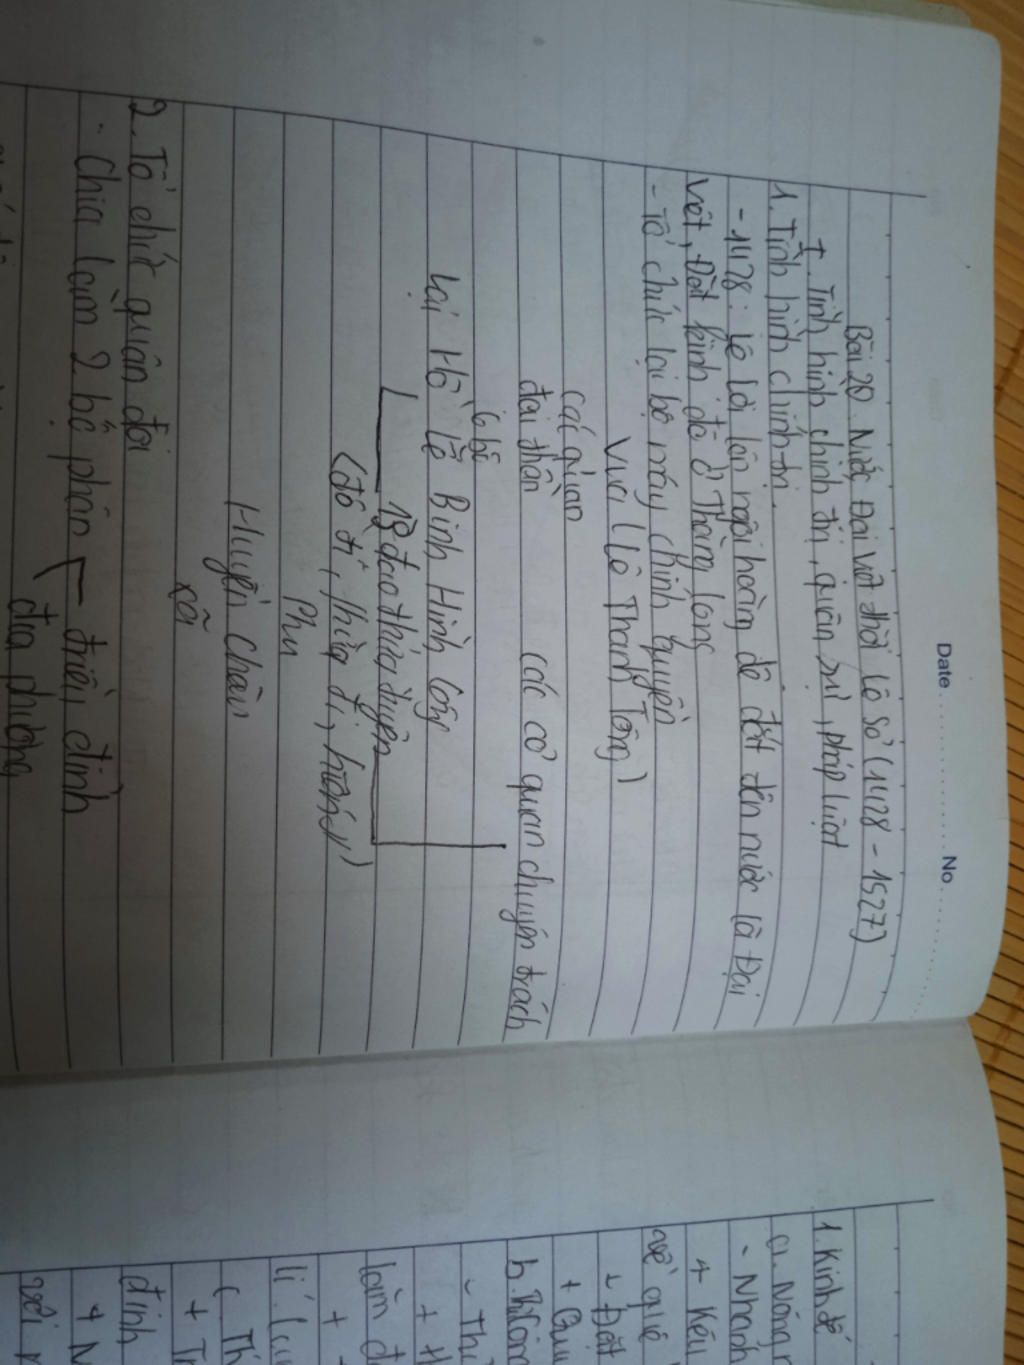 Date No.
Bài 20 Nước Đại Việt thời Lê sơ (1428 - 1527)
I. Tình hình chính trị, quân sự, pháp luật
1. Tình hình chính trị.
- 1428: Lê Lợi lên ngôi hoàng đế đặt tên nước là Đại
Việt, Đặt kinh đô ở Thăng Long
- Tổ chức lại bộ máy chính quyền
Vua (Lê Thanh Tông)
các quan
đại thần các cơ quan chuyên trách
6 bộ
Lại Hộ Lễ Binh Hình Công
13 đạo thừa tuyên
(đô ti, thừa ti, hiến ti)
Phủ
Huyện Châu
xã
2. Tổ chức quân đội
- Chia làm 2 bộ phận triều đình
địa phương
1. Kinh tế
a. Nông
- Nhanh
+ Kêu
về quê
+ Đặt
b.
làm
+
lí
+
định
+